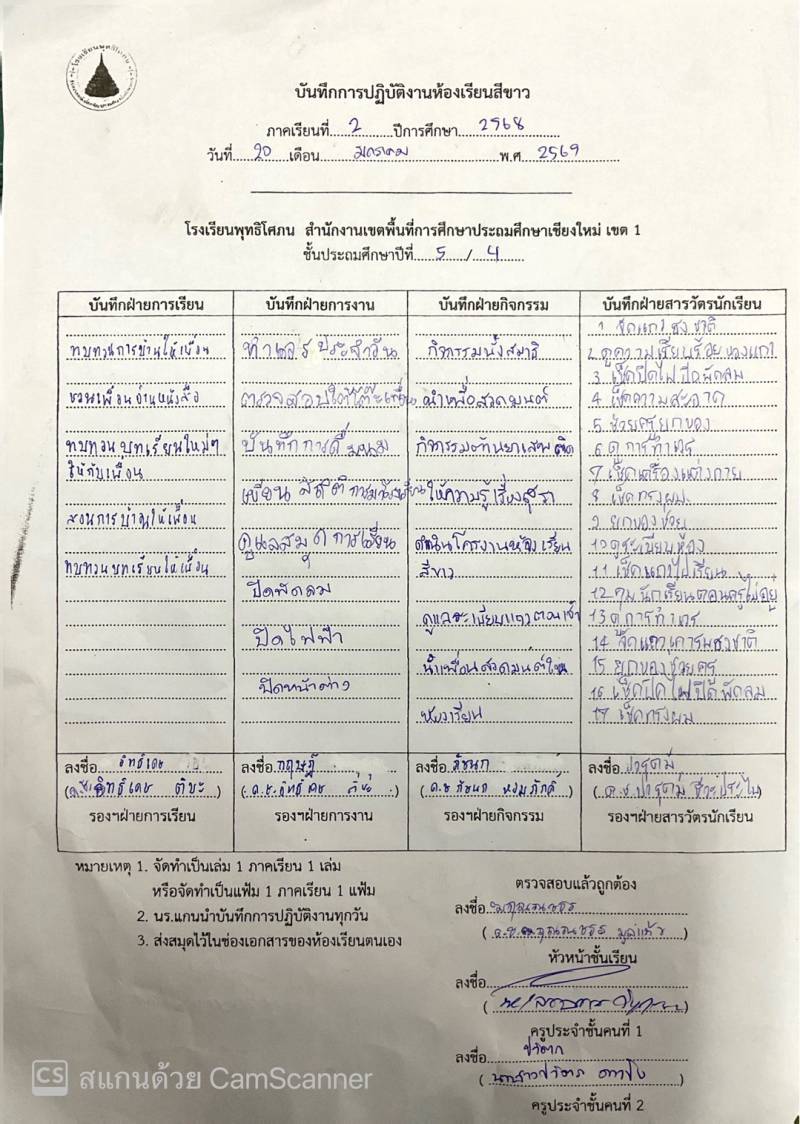 บันทึกการปฏิบัติงานห้องเรียนสีขาว
ภาคเรียนที่ 2 ปีการศึกษา 2568
วันที่ 20 เดือน มกราคม พ.ศ 2569
โรงเรียนพุทธิโศภน สำนักงานเขตพื้นที่การศึกษาประถมศึกษาเชียงใหม่ เขต 1
ชั้นประถมศึกษาปีที่ 5 / 4
บันทึกฝ่ายการเรียน
ทบทวนการบ้านให้เพื่อน
ชวนเพื่อนอ่านหนังสือ
ทบทวนบทเรียนใหม่ๆ
ให้กับเพื่อน
สอนการบ้านให้เพื่อน
ทบทวนบทเรียนให้เพื่อน
ลงชื่อ อิทธิ์เดช
อิทธิ์เดช ติบะ
รองฯฝ่ายการเรียน
บันทึกฝ่ายการงาน
ทำเวรประจำวัน
ตรวจสอบใต้โต๊ะเพื่อน
บันทึกการดื่มนม
เขียนสถิติการมาโรงเรียน
ดูแลสมุดการเรียน
ปิดพัดลม
ปิดไฟฟ้า
ปิดหน้าต่าง
ลงชื่อ กฤษฎิ์
รองฯฝ่ายการงาน
บันทึกฝ่ายกิจกรรม
กิจกรรมนั่งสมาธิ
นำเพื่อสวดมนต์
กิจกรรมต้านยาเสพติด
ให้ความรู้เรื่องสุรา
ดำเนินโครงานห้องเรียน
สีขาว
ดูแลระเบียบแถวตอนเช้า
นำเพื่อนสวดมนต์ใน
ห้องเรียน
ลงชื่อ ภัชนก
(ด.ช ภัชนก หอมภักดิ์)
รองฯฝ่ายกิจกรรม
บันทึกฝ่ายสารวัตรนักเรียน
1 จัดแถวธงชาติ
2 ดูความเรียบร้อยของแถว
3 เช็คปิดไฟปิดพัดลม
4 เช็คความสะอาด
5 ช่วยครูยกของ
6 ดูการทำเวร
7 เช็คเครื่องแต่งกาย
8 เช็คทรงผม
9 ยกของช่วย
10 ดูระเบียบห้อง
11 เช็คแถวไปเรียน
12 คุมนักเรียนตอนครูไม่อยู่
13 ดูการทำเวร
14 จัดแถวเคารพธงชาติ
15 ยกของช่วยครู
16 เช็คปิดไฟปิดพัดลม
17 เช็คทรงผม
ลงชื่อ
รองฯฝ่ายสารวัตรนักเรียน
หมายเหตุ 1. จัดทำเป็นเล่ม 1 ภาคเรียน 1 เล่ม
หรือจัดทำเป็นแฟ้ม 1 ภาคเรียน 1 แฟ้ม
2. นร.แกนนำบันทึกการปฏิบัติงานทุกวัน
3. ส่งสมุดไว้ในช่องเอกสารของห้องเรียนตนเอง
ตรวจสอบแล้วถูกต้อง
ลงชื่อ
หัวหน้าชั้นเรียน
ลงชื่อ
ครูประจำชั้นคนที่ 1
ลงชื่อ
ครูประจำชั้นคนที่ 2
CS สแกนด้วย CamScanner